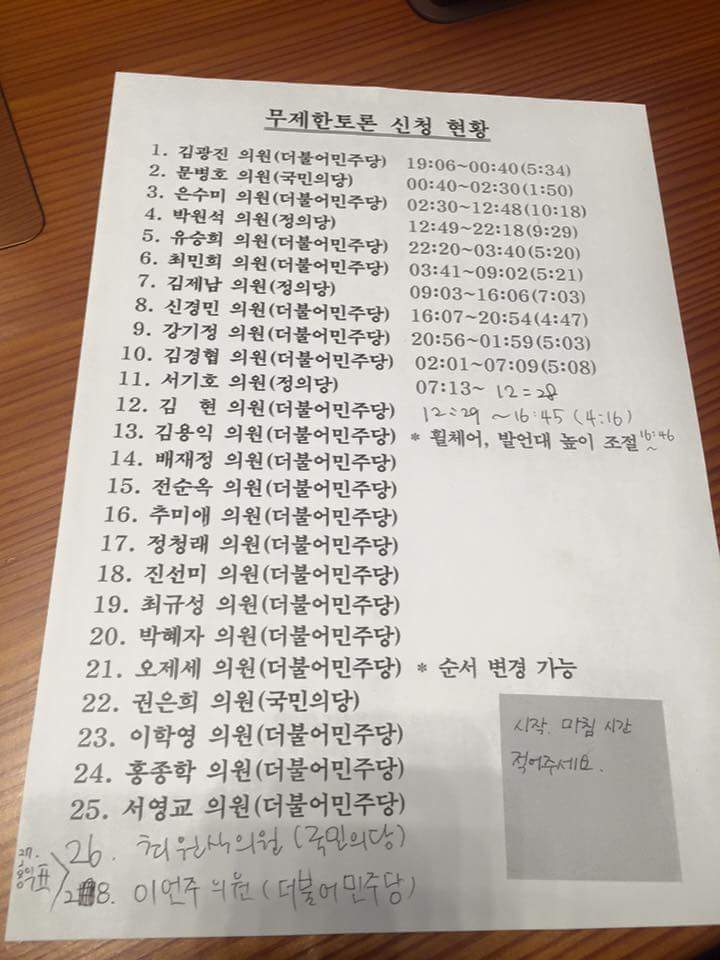 무제한토론 신청 현황
1. 김광진 의원(더불어민주당) 19:06~00:40(5:34)
2. 문병호 의원(국민의당) 00:40~02:30(1:50)
3. 은수미 의원(더불어민주당) 02:30~12:48(10:18)
4. 박원석 의원(정의당) 12:49~22:18(9:29)
5. 유승희 의원(더불어민주당) 22:20~03:40(5:20)
6. 최민희 의원(더불어민주당) 03:41~09:02(5:21)
7. 김제남 의원(정의당) 09:03~16:06(7:03)
8. 신경민 의원(더불어민주당) 16:07~20:54(4:47)
9. 강기정 의원(더불어민주당) 20:56~01:59(5:03)
10. 김경협 의원(더불어민주당) 02:01~07:09(5:08)
11. 서기호 의원(정의당) 07:13~ 12:28
12. 김 현 의원(더불어민주당) 12:29 ~16:45 (4:16)
13. 김용익 의원(더불어민주당) * 휠체어, 발언대 높이 조절 16:46 ~
14. 배재정 의원(더불어민주당)
15. 전순옥 의원(더불어민주당)
16. 추미애 의원(더불어민주당)
17. 정청래 의원(더불어민주당)
18. 진선미 의원(더불어민주당)
19. 최규성 의원(더불어민주당)
20. 박혜자 의원(더불어민주당)
21. 오제세 의원(더불어민주당) * 순서 변경 가능
22. 권은희 의원(국민의당)
23. 이학영 의원(더불어민주당)
24. 홍종학 의원(더불어민주당)
25. 서영교 의원(더불어민주당)
26. 최원식의원(국민의당)
27.
28. 이언주 의원(더불어민주당)
시작, 마침 시간
적어주세요.